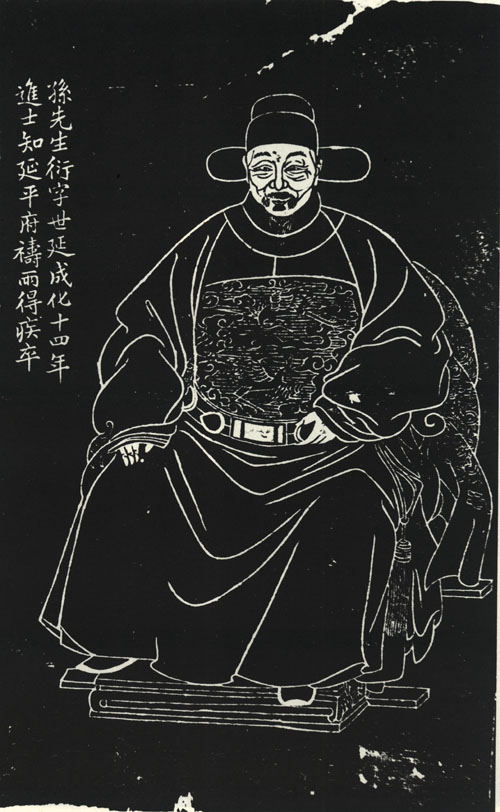 孫先生衍字世延成化十四年
進士知延平府禱雨得疾卒